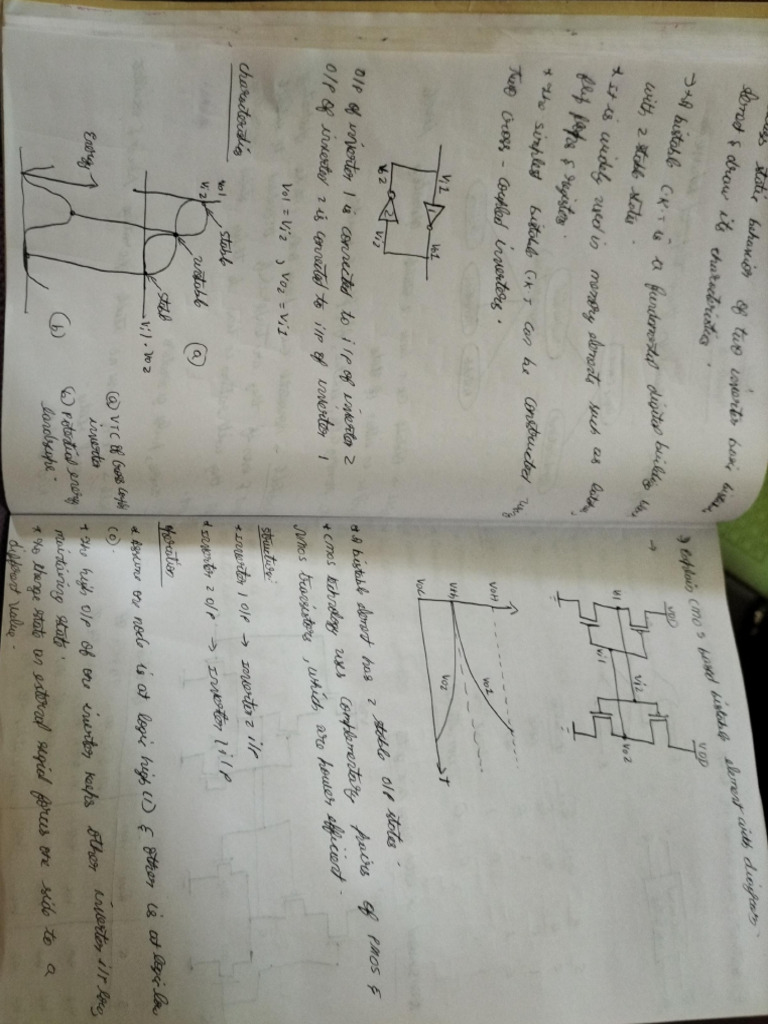 static behavior of two inverter basic
& draw its characteristics.
→ * A bistable CKT is a fundamental digital building
with 2 stable states.
* It is widely used in memory elements such as
& registers.
* The simplest bistable CKT can be constructed
two cross-coupled inverters.
Vi1
1
Vo1
Vo2
2
Vi2
O/P of inverter 1 is connected to i/P of inverter 2
O/P of inverter 2 is connected to i/P of inverter 1
Vo1 = Vi2 , Vo2 = Vi1
characteristics
Vo1
Vi2
stable
unstable
stable
Vi1 . Vo2
(a)
Energy
(b)
(a) VTC of
inverter
(b) Potential energy
landscape.
Explain CMOS based bistable element with diagram.
→
VDD
VDD
Vi2
Vi1
Vo2
VOH
Vth
VOL
Vo2
T
* A bistable element has 2 stable O/P states.
* CMOS technology uses complementary pairs of PMOS &
NMOS transistors, which are power efficient.
structure:
* inverter 1 O/P → inverter 2 i/P
* inverter 2 O/P → inverter 1 i/P
operation
* Assume one node is at logic high (1) & other is at logic low
(0).
* The high O/P of one inverter keeps other inverter i/P
maintaining state.
* To change state an external signal forces one side to a
different value.